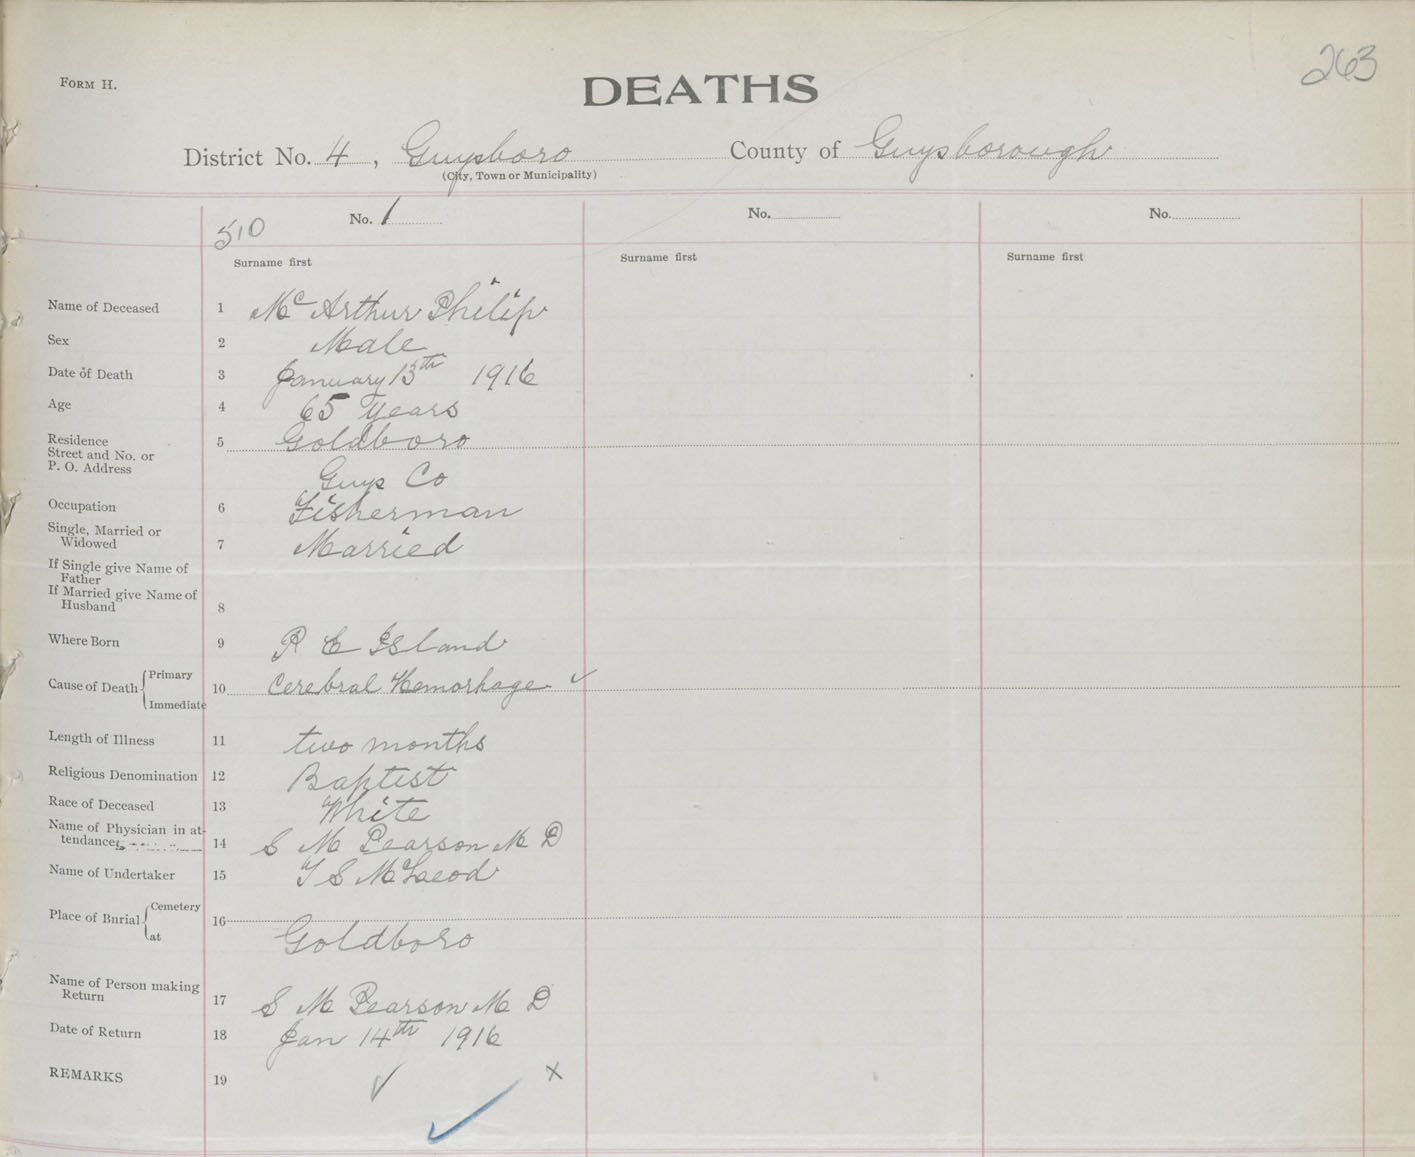 263
FORM H.
DEATHS
District No. 4, Guysboro County of Guysborough
(City, Town or Municipality)
No. 1 No. No.
510
Surname first Surname first Surname first
Name of Deceased 1 Mc Arthur Philip
Sex 2 Male
Date of Death 3 January 13th 1916
Age 4 65 Years
Residence 5 Goldboro
Street and No. or
P. O. Address
Guys Co
Occupation 6 Fisherman
Single, Married or
Widowed 7 Married
If Single give Name of
Father
If Married give Name of
Husband 8
Where Born 9 P E Island
Cause of Death Primary 10 Cerebral Hemorhage ✓
Immediate
Length of Illness 11 two months
Religious Denomination 12 Baptist
Race of Deceased 13 White
Name of Physician in at-
tendance 14 S M Pearson M D
Name of Undertaker 15 T S McLeod
Place of Burial Cemetery 16
at Goldboro
Name of Person making
Return 17 S M Pearson M D
Date of Return 18 Jan 14th 1916
REMARKS 19 ✓ x
✓